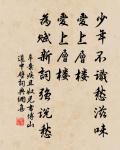 少年不識愁滋味
愛上層樓
愛上層樓
為賦新詞強説愁
辛棄疾丑奴兒書博山
道中壁